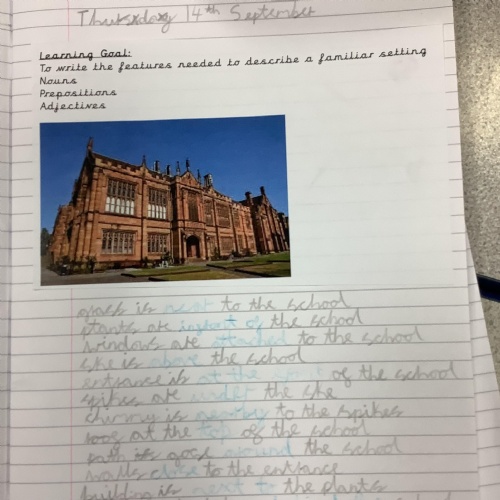 Thursday 14th September
Learning Goal:
To write the features needed to describe a familiar setting
Nouns
Prepositions
Adjectives
grass is next to the school
plants are infront of the school
windows are attached to the school
ske is above the school
entrance is at the front of the school
spikes are under the ske
chimny is nearby to the spikes
roof at the top of the school
path goes around the school
walls close to the entrance
building is next to the plants